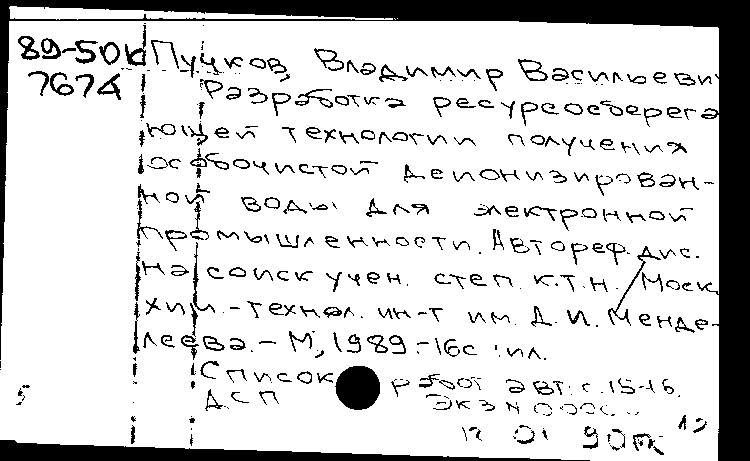 89-50к Пучков, Владимир Васильевич
7674
Разработка ресурсосберега-
ющей технологии получения
особочистой деионизирован-
ной воды для электронной
промышленности. Автореф. дис.
на соиск учен. степ. к.т.н. / Моск.
хим.-технол. ин-т им. Д.И. Менде-
леева. - М., 1989. - 16с : ил.
Список работ авт.: с. 15-16.
ДСП Экз N
5
12 01 90